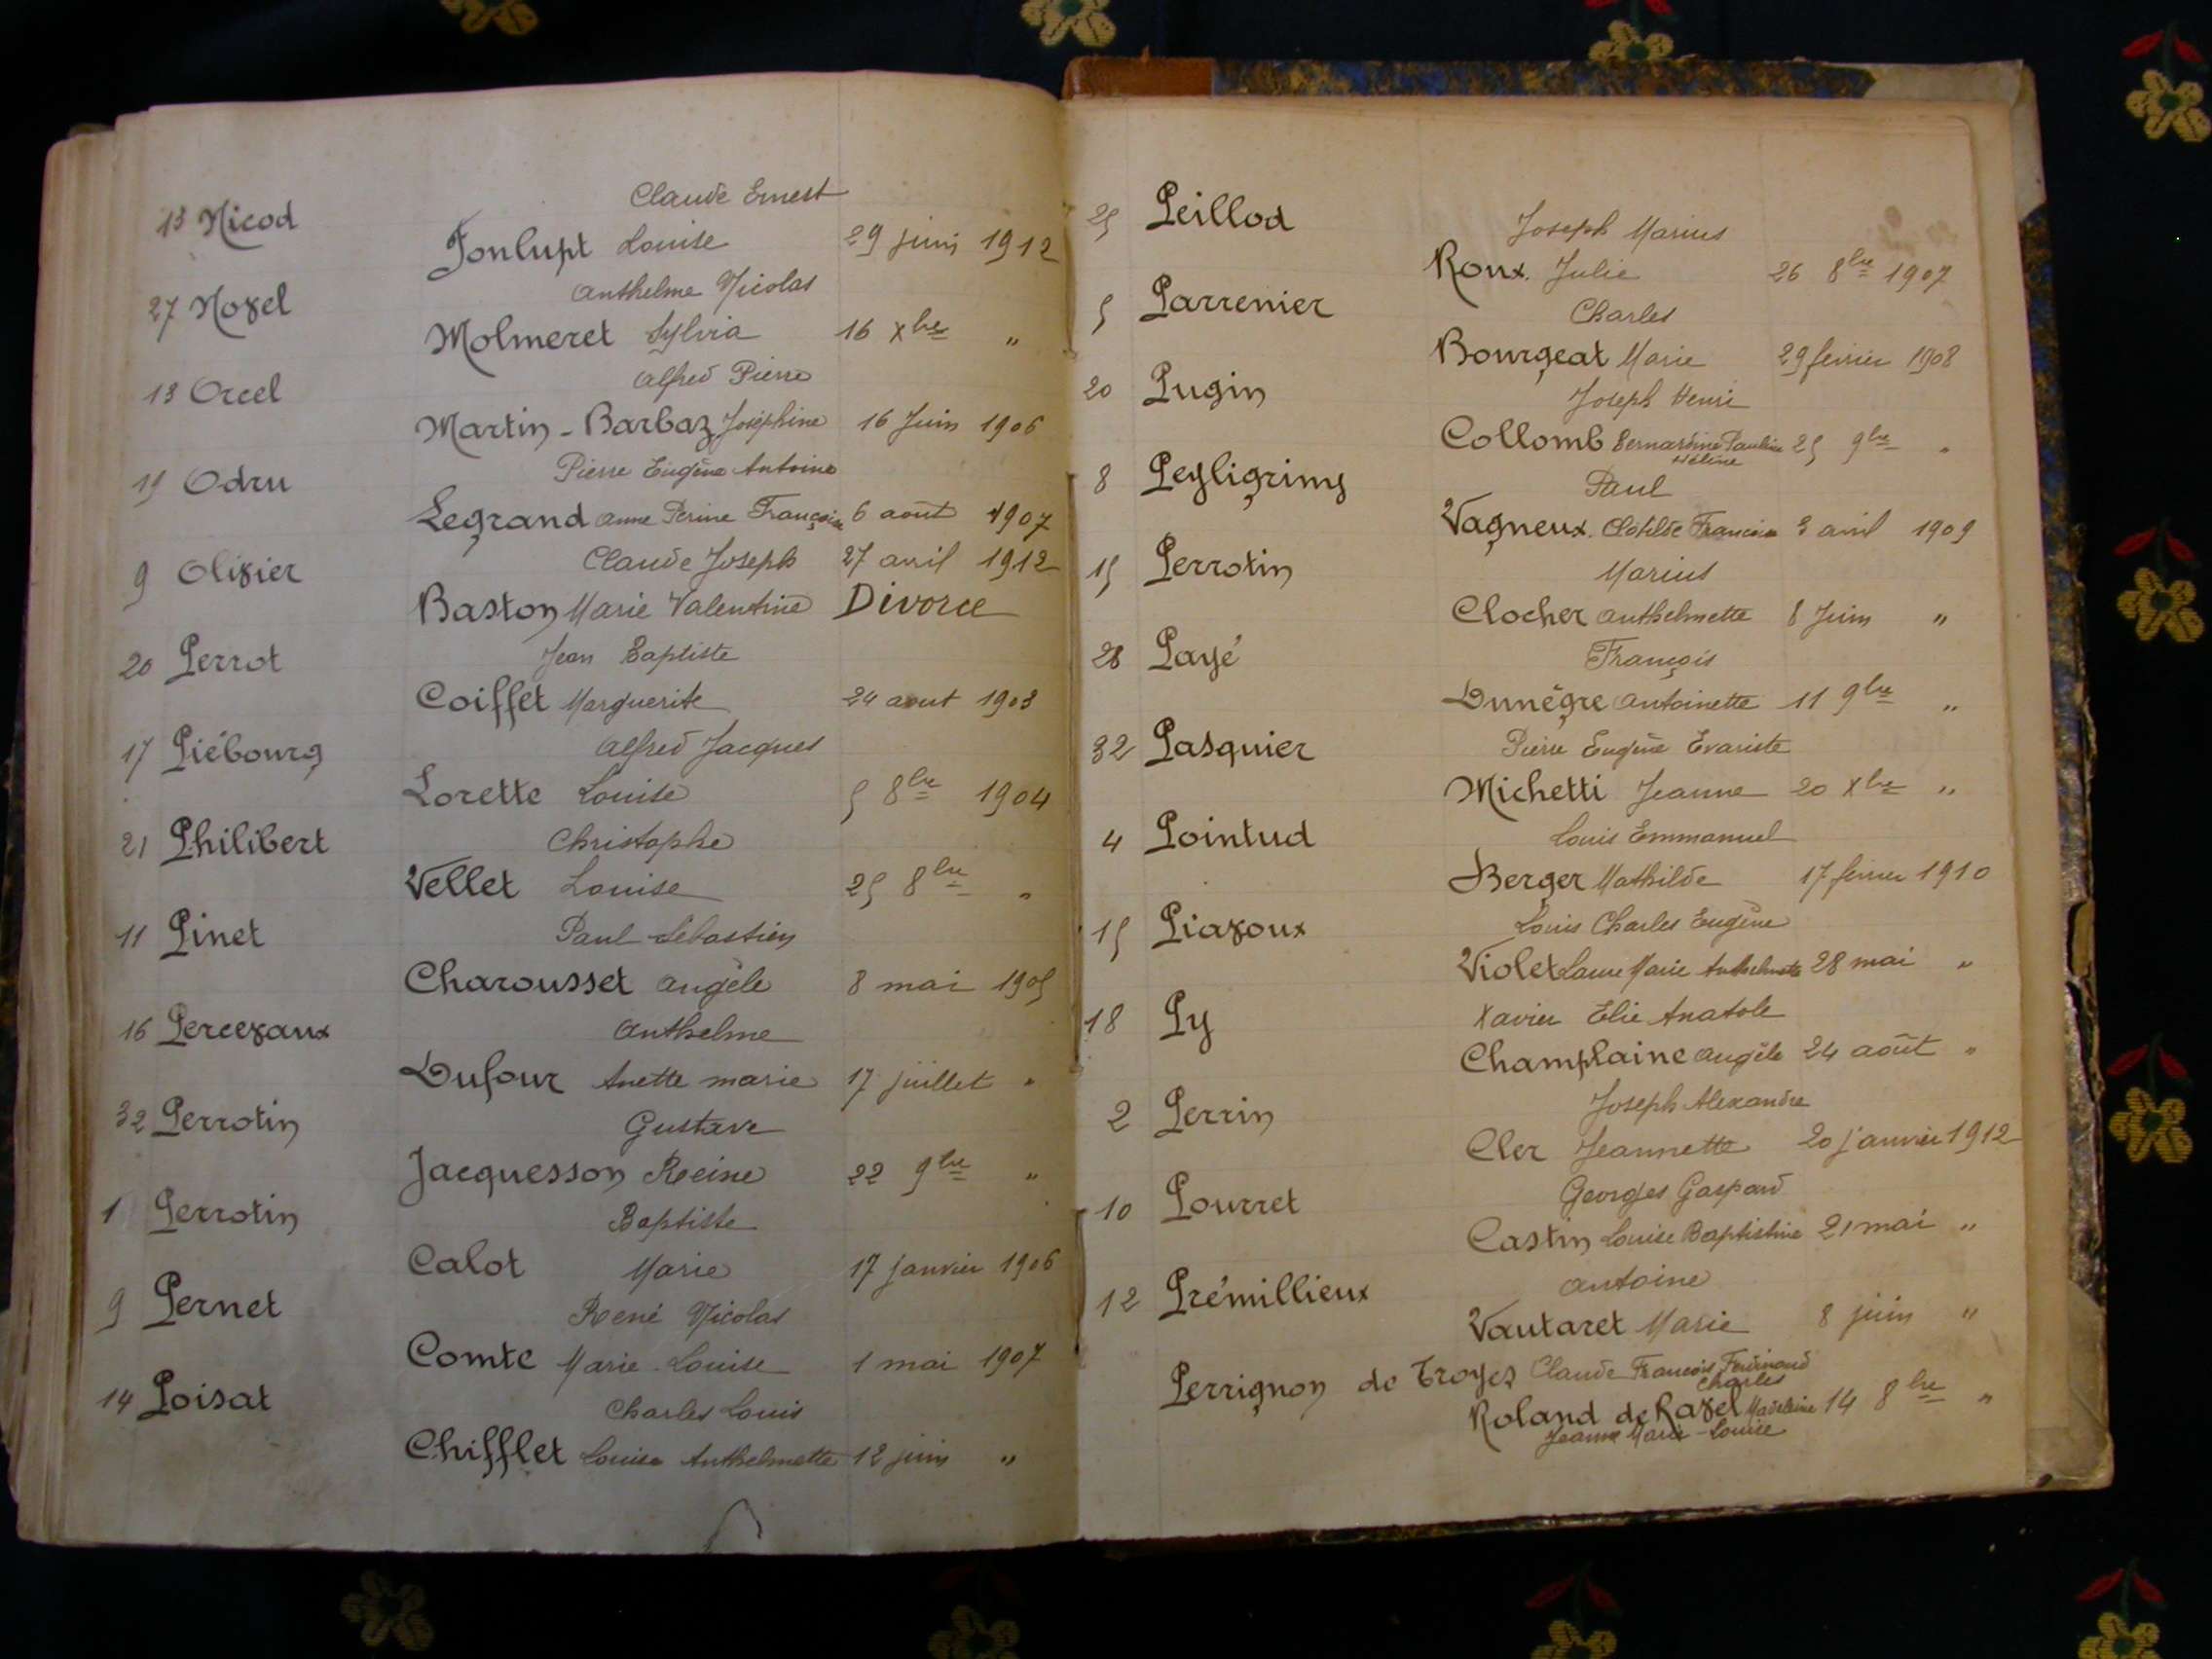 13 Nicod Claude Ernest
Fonlupt Louise 29 juin 1912
27 Nozel Anthelme Nicolas
Molmeret Sylvia 16 Xbre "
13 Orcel Alfred Pierre
Martin-Barbaz Joséphine 16 Juin 1906
19 Odru Pierre Eugène Antoine
Legrand Anne Perine Françoise 6 août 1907
9 Olizier Claude Joseph 27 avril 1912
Baston Marie Valentine Divorce
20 Perrot Jean Baptiste
Coiffet Marguerite 24 aout 1903
17 Piébourg Alfred Jacques
Lorette Louise 5 8bre 1904
21 Philibert Christophe
Vellet Louise 25 8bre "
11 Pinet Paul Sébastien
Charousset Angèle 8 mai 1905
16 Percezaux Anthelme
Dufour Anette marie 17 juillet "
32 Perrotin Gustave
Jacquesson Reine 22 9bre "
1 Perrotin Baptiste
Calot Marie 17 janvier 1906
9 Pernet René Nicolas
Comte Marie-Louise 1 mai 1907
14 Poisat Charles Louis
Chifflet Louise Anthelmette 12 juin "
25 Peillod Joseph Marius
Roux. Julie 26 8bre 1907
5 Parrenier Charles
Bourgeat Marie 29 fevrier 1908
20 Pugin Joseph Henri
Collomb Bernardine Pauline 25 9bre "
Hélène
8 Peyligrimy Paul
Vagneux. Clotilde Francine 3 avril 1909
15 Perrotin Marius
Clocher Anthelmette 8 Juin "
28 Payé François
Dunègre Antoinette 11 9bre "
32 Pasquier Pierre Eugène Evariste
Michetti Jeanne 20 Xbre "
4 Pointud Louis Emmanuel
Berger Mathilde 17 fevrier 1910
15 Piazoux Louis Charles Eugène
Violet Laure Marie Anthelmette 28 mai "
18 Py Xavier Elie Anatole
Champlaine Angèle 24 août "
2 Perrin Joseph Alexandre
Cler Jeannette 20 janvier 1912
10 Pourret Georges Gaspard
Castin Louise Baptistine 21 mai "
12 Prémillieux Antoine
Vautaret Marie 8 juin "
Perrignon de Troyes Claude François Ferdinand
Charles
Roland de Razel Madeleine 14 8bre "
Jeanne Marie-Louise